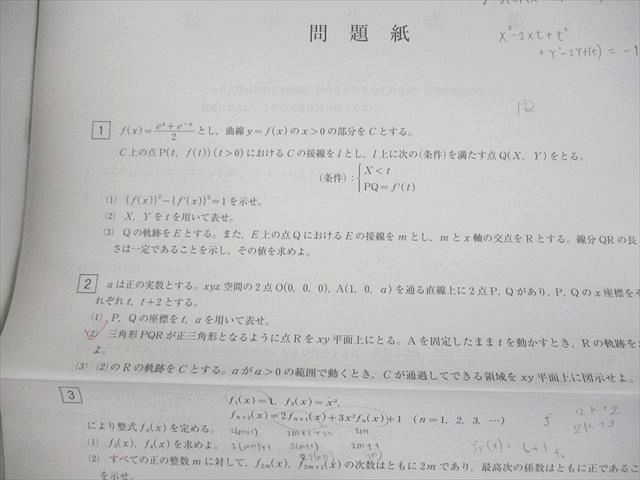 x²-2xt+t²
+y²-2Yf(t) = -1
問題紙
PQ
1 f(x)=(eˣ+e⁻ˣ)/2 とし，曲線 y=f(x) の x>0 の部分を C とする。
C 上の点 P(t, f(t)) (t>0) における C の接線を l とし，l 上に次の(条件)を満たす点 Q(X, Y) をとる。
(条件)：{X<t
PQ=f′(t)
(1) {f(x)}²-{f′(x)}²=1 を示せ。
(2) X, Y を t を用いて表せ。
(3) Q の軌跡を E とする。また，E 上の点 Q における E の接線を m とし，m と x 軸の交点を R とする。線分 QR の長
さは一定であることを示し，その値を求めよ。
2 a は正の実数とする。xyz 空間の 2 点 O(0, 0, 0), A(1, 0, a) を通る直線上に 2 点 P, Q があり，P, Q の x 座標をそ
れぞれ t, t+2 とする。
(1) P, Q の座標を t, a を用いて表せ。
(2) 三角形 PQR が正三角形となるように点 R を xy 平面上にとる。A を固定したまま t を動かすとき，R の軌跡を
よ。
(3) (2)の R の軌跡を C とする。a が a>0 の範囲で動くとき，C が通過してできる領域を xy 平面上に図示せよ。
3 f₁(x)=1, f₂(x)=x²,
fₙ₊₂(x)=2fₙ₊₁(x)+3x²fₙ(x)+1 (n=1, 2, 3, …)
2k+2
2k+3
により整式 fₙ(x) を定める。
(1) f₃(x), f₄(x) を求めよ。
(2) すべての正の整数 m に対して，f₂ₘ(x), f₂ₘ₊₁(x) の次数はともに 2m であり，最高次の係数はともに正であるこ
とを示せ。